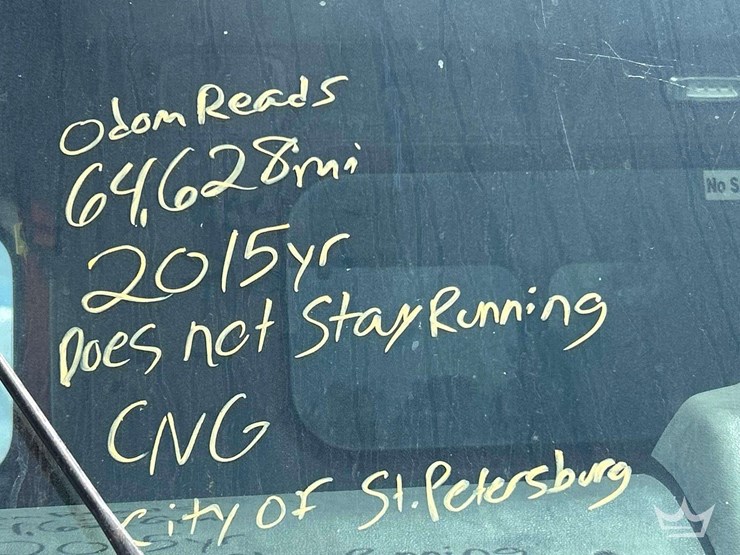 Odom Reads
64,628mi
2015yr
Does not Stay Running
CNG
City of St. Petersburg
No S